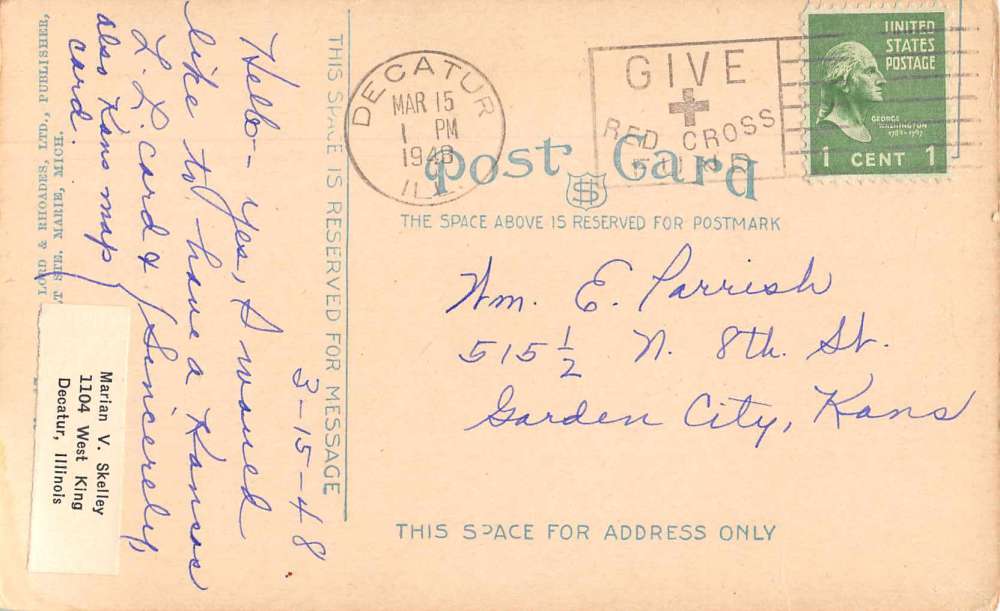 DECATUR
MAR 15
1 PM
1948
ILL.
GIVE
RED CROSS
UNITED
STATES
POSTAGE
GEORGE
WASHINGTON
1789-1797
1 CENT 1
Post Card
THE SPACE ABOVE IS RESERVED FOR POSTMARK
THIS SPACE IS RESERVED FOR MESSAGE
3-15-48
Hello- Yes, I would
like to have a Kansas
L.L. card &
also Kans map
card.
Sincerely,
Marian V. Skelley
1104 West King
Decatur, Illinois
Wm. E. Parrish
515 1/2 N. 8th. St.
Garden City, Kans
THIS SPACE FOR ADDRESS ONLY
LORD & RHOADES, LTD., PUBLISHER,
STE. MARIE, MICH.